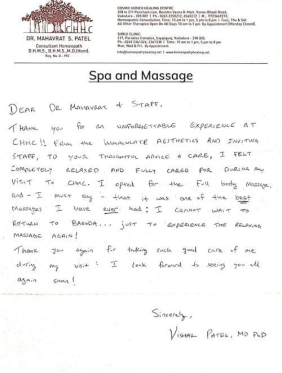 COSMIC HOMEO HEALING CENTRE
DR. MAHAVRAT S. PATEL
Consultant Homeopath
D.H.M.S., B.H.M.S., M.D.(Hom).
SIMILE CLINIC
Spa and Massage
DEAR DR MAHAVRAT & STAFF,
THANK you for an UNFORGETTABLE EXPERIENCE AT
CHHC!! FROM the IMMACULATE AESTHETICS AND INVITING
STAFF, TO YOUR THOUGHTFUL ADVICE & CARE, I FELT
COMPLETELY RELAXED AND FULLY CARED FOR DURING my
VISIT TO CHHC. I OPTED FOR the Full body massage,
and - I must say - that it was one of the best
massages I have ever had! I CANNOT WAIT TO
RETURN TO BARODA... JUST TO EXPERIENCE THE RELAXING
MASSAGE AGAIN!
Thank you again for taking such good care of me
during my visit! I look forward to seeing you all
again soon!
Sincerely,
VISHAL PATEL, MD PhD